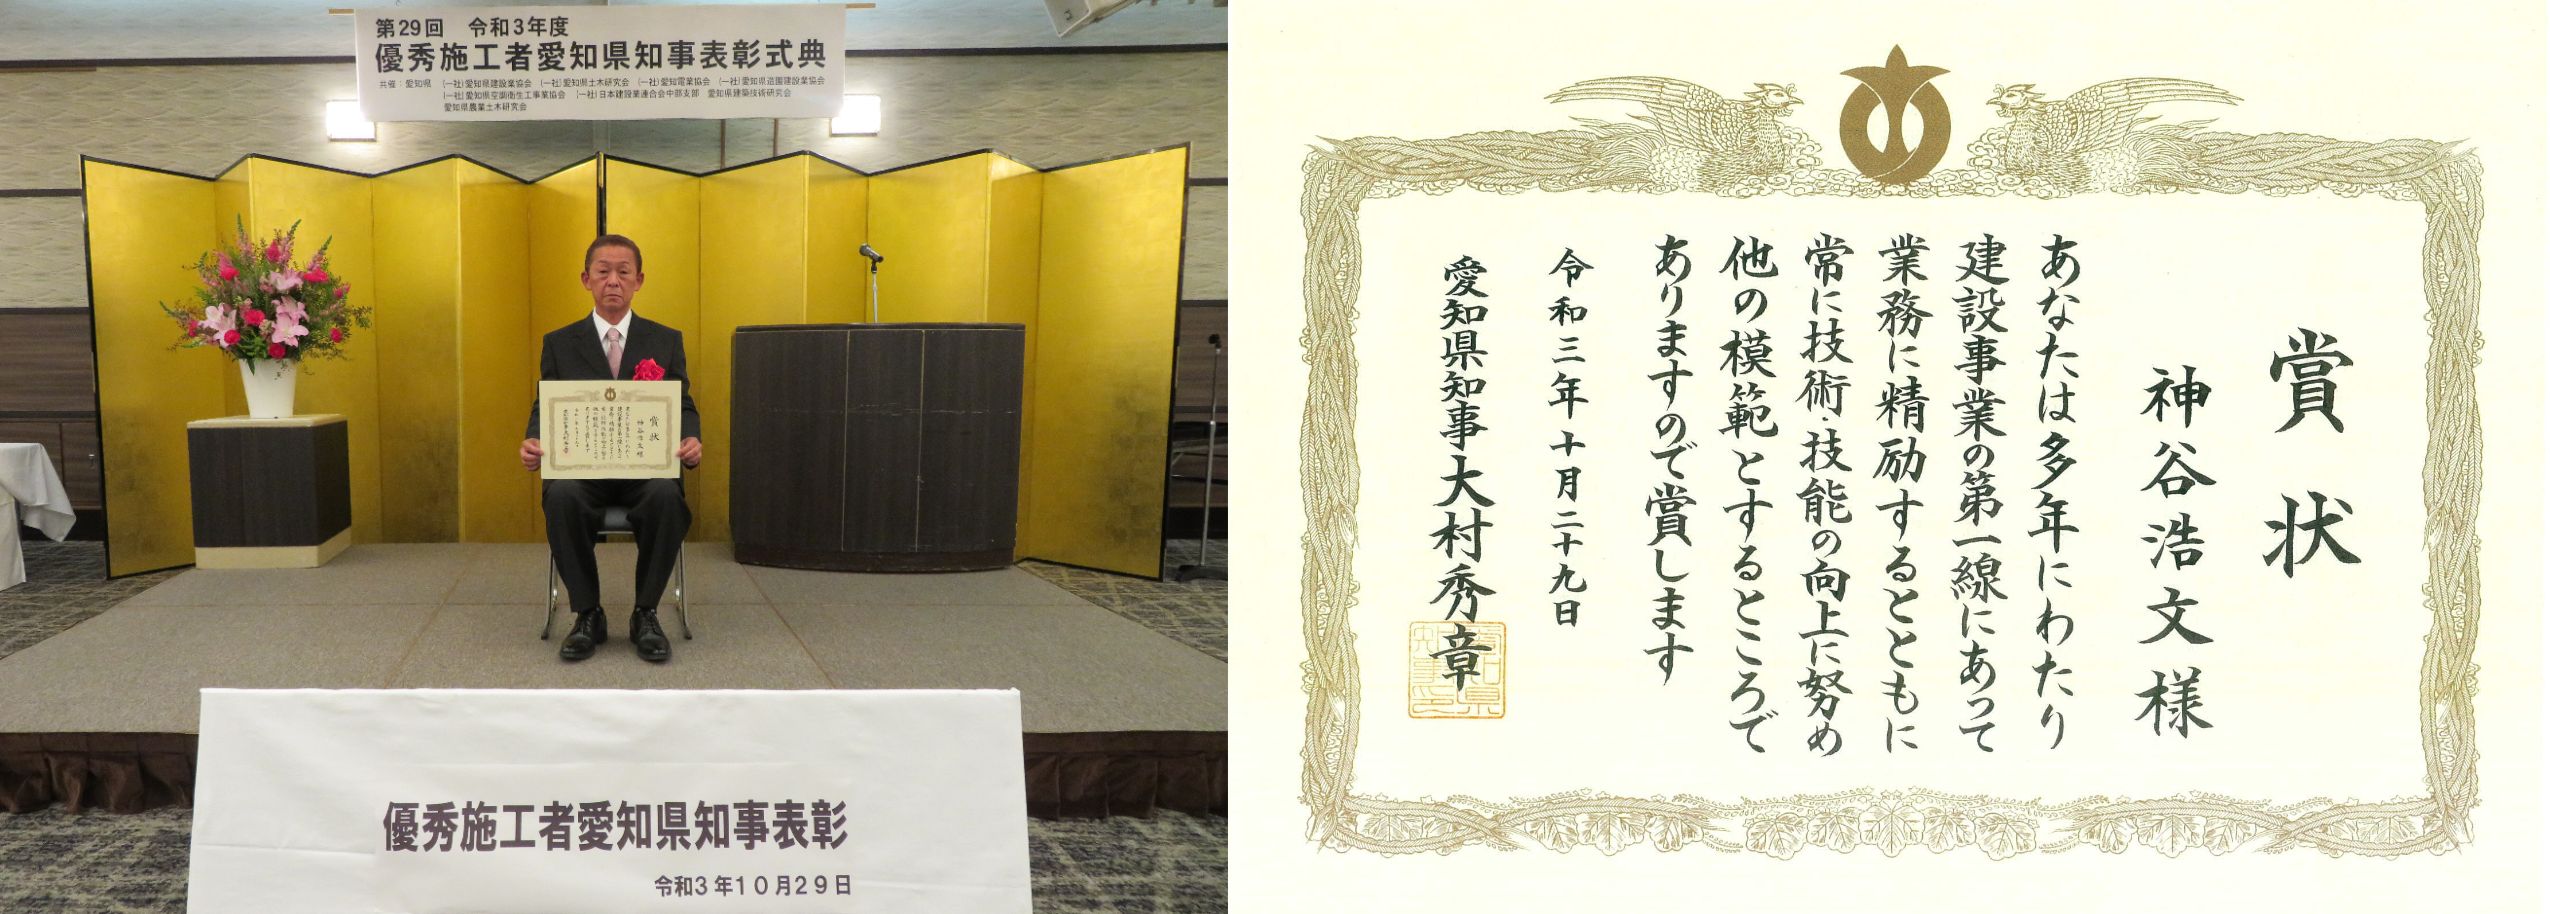 第29回　令和3年度
優秀施工者愛知県知事表彰式典
共催：愛知県　(一社)愛知県建設業協会　(一社)愛知県土木研究会　(一社)愛知電業協会　(一社)愛知県造園建設業協会
(一社)愛知県空調衛生工事業協会　(一社)日本建設業連合会中部支部　愛知県建築技術研究会
愛知県農業土木研究会
優秀施工者愛知県知事表彰
令和3年10月29日
賞状
神谷浩文様
あなたは多年にわたり
建設事業の第一線にあって
業務に精励するとともに
常に技術・技能の向上に努め
他の模範とするところで
ありますので賞します
令和三年十月二十九日
愛知県知事大村秀章
愛知県
知事之印